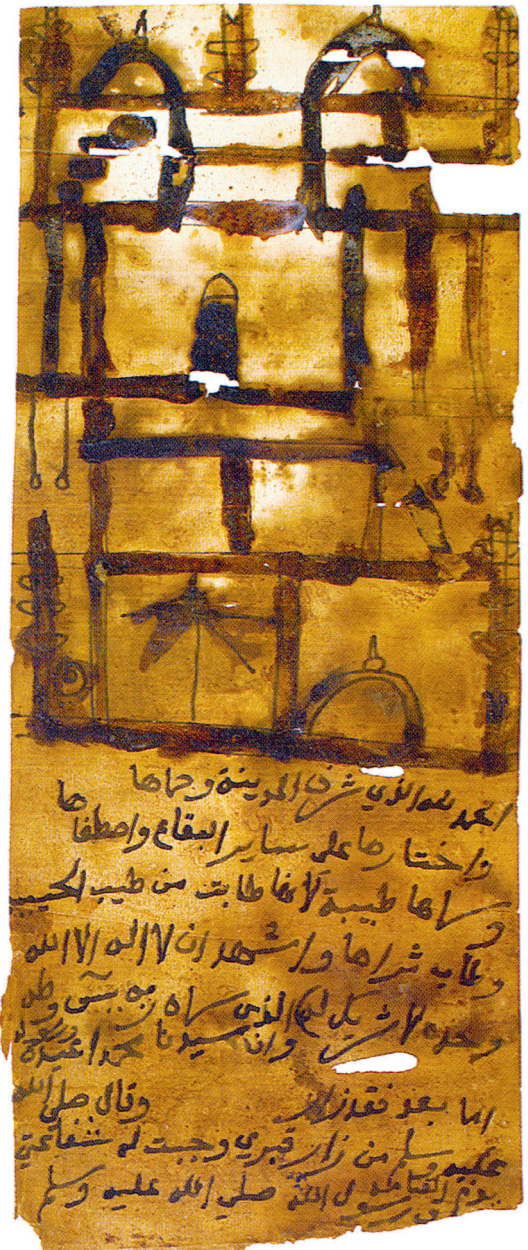 الحمد لله الذي شرف المدينة وحماها
واختارها على ساير البقاع واصطفاها
وسماها طيبة لانها طابت من طيب الحبيب
وطاب ثراها واشهد ان لا اله الا الله
وحده لا شريك له الذي سماه ربه يسى وطه
وان سيدنا محمدا عبده ورسوله
اما بعد فقد زار وقال صلى الله
عليه وسلم من زار قبري وجبت له شفاعتي
يوم القيامة رسول الله صلي الله عليه وسلم